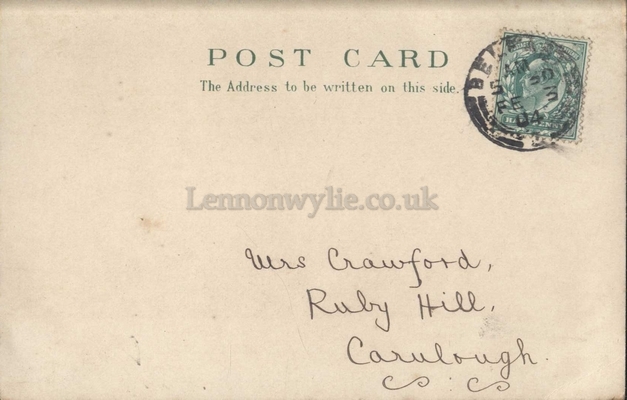 POST CARD
The Address to be written on this side.
BELFAST
5 AM
FE 3
04
Lennonwylie.co.uk
Mrs Crawford,
Ruby Hill,
Carulough.